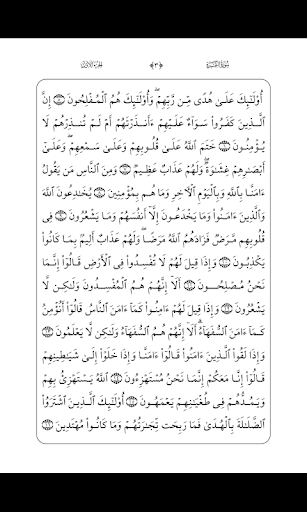 سُورَةُ البَقَرَةِ ﴿٣﴾ الجُزْءُ الأَوَّلُ
أُوْلَٰٓئِكَ عَلَىٰ هُدًى مِّن رَّبِّهِمْ ۖ وَأُوْلَٰٓئِكَ هُمُ ٱلْمُفْلِحُونَ ۝ إِنَّ
ٱلَّذِينَ كَفَرُوا۟ سَوَآءٌ عَلَيْهِمْ ءَأَنذَرْتَهُمْ أَمْ لَمْ تُنذِرْهُمْ لَا
يُؤْمِنُونَ ۝ خَتَمَ ٱللَّهُ عَلَىٰ قُلُوبِهِمْ وَعَلَىٰ سَمْعِهِمْ ۖ وَعَلَىٰٓ
أَبْصَٰرِهِمْ غِشَٰوَةٌ ۖ وَلَهُمْ عَذَابٌ عَظِيمٌ ۝ وَمِنَ ٱلنَّاسِ مَن يَقُولُ
ءَامَنَّا بِٱللَّهِ وَبِٱلْيَوْمِ ٱلْءَاخِرِ وَمَا هُم بِمُؤْمِنِينَ ۝ يُخَٰدِعُونَ
وَٱلَّذِينَ ءَامَنُوا۟ وَمَا يَخْدَعُونَ إِلَّآ أَنفُسَهُمْ وَمَا يَشْعُرُونَ ۝ فِى
قُلُوبِهِم مَّرَضٌ فَزَادَهُمُ ٱللَّهُ مَرَضًا ۖ وَلَهُمْ عَذَابٌ أَلِيمٌۢ بِمَا كَانُوا۟
يَكْذِبُونَ ۝ وَإِذَا قِيلَ لَهُمْ لَا تُفْسِدُوا۟ فِى ٱلْأَرْضِ قَالُوٓا۟ إِنَّمَا
نَحْنُ مُصْلِحُونَ ۝ أَلَآ إِنَّهُمْ هُمُ ٱلْمُفْسِدُونَ وَلَٰكِن لَّا
يَشْعُرُونَ ۝ وَإِذَا قِيلَ لَهُمْ ءَامِنُوا۟ كَمَآ ءَامَنَ ٱلنَّاسُ قَالُوٓا۟ أَنُؤْمِنُ
كَمَآ ءَامَنَ ٱلسُّفَهَآءُ ۗ أَلَآ إِنَّهُمْ هُمُ ٱلسُّفَهَآءُ وَلَٰكِن لَّا يَعْلَمُونَ ۝
وَإِذَا لَقُوا۟ ٱلَّذِينَ ءَامَنُوا۟ قَالُوٓا۟ ءَامَنَّا وَإِذَا خَلَوْا۟ إِلَىٰ شَيَٰطِينِهِمْ
قَالُوٓا۟ إِنَّا مَعَكُمْ إِنَّمَا نَحْنُ مُسْتَهْزِءُونَ ۝ ٱللَّهُ يَسْتَهْزِئُ بِهِمْ
وَيَمُدُّهُمْ فِى طُغْيَٰنِهِمْ يَعْمَهُونَ ۝ أُوْلَٰٓئِكَ ٱلَّذِينَ ٱشْتَرَوُا۟
ٱلضَّلَٰلَةَ بِٱلْهُدَىٰ فَمَا رَبِحَت تِّجَٰرَتُهُمْ وَمَا كَانُوا۟ مُهْتَدِينَ ۝